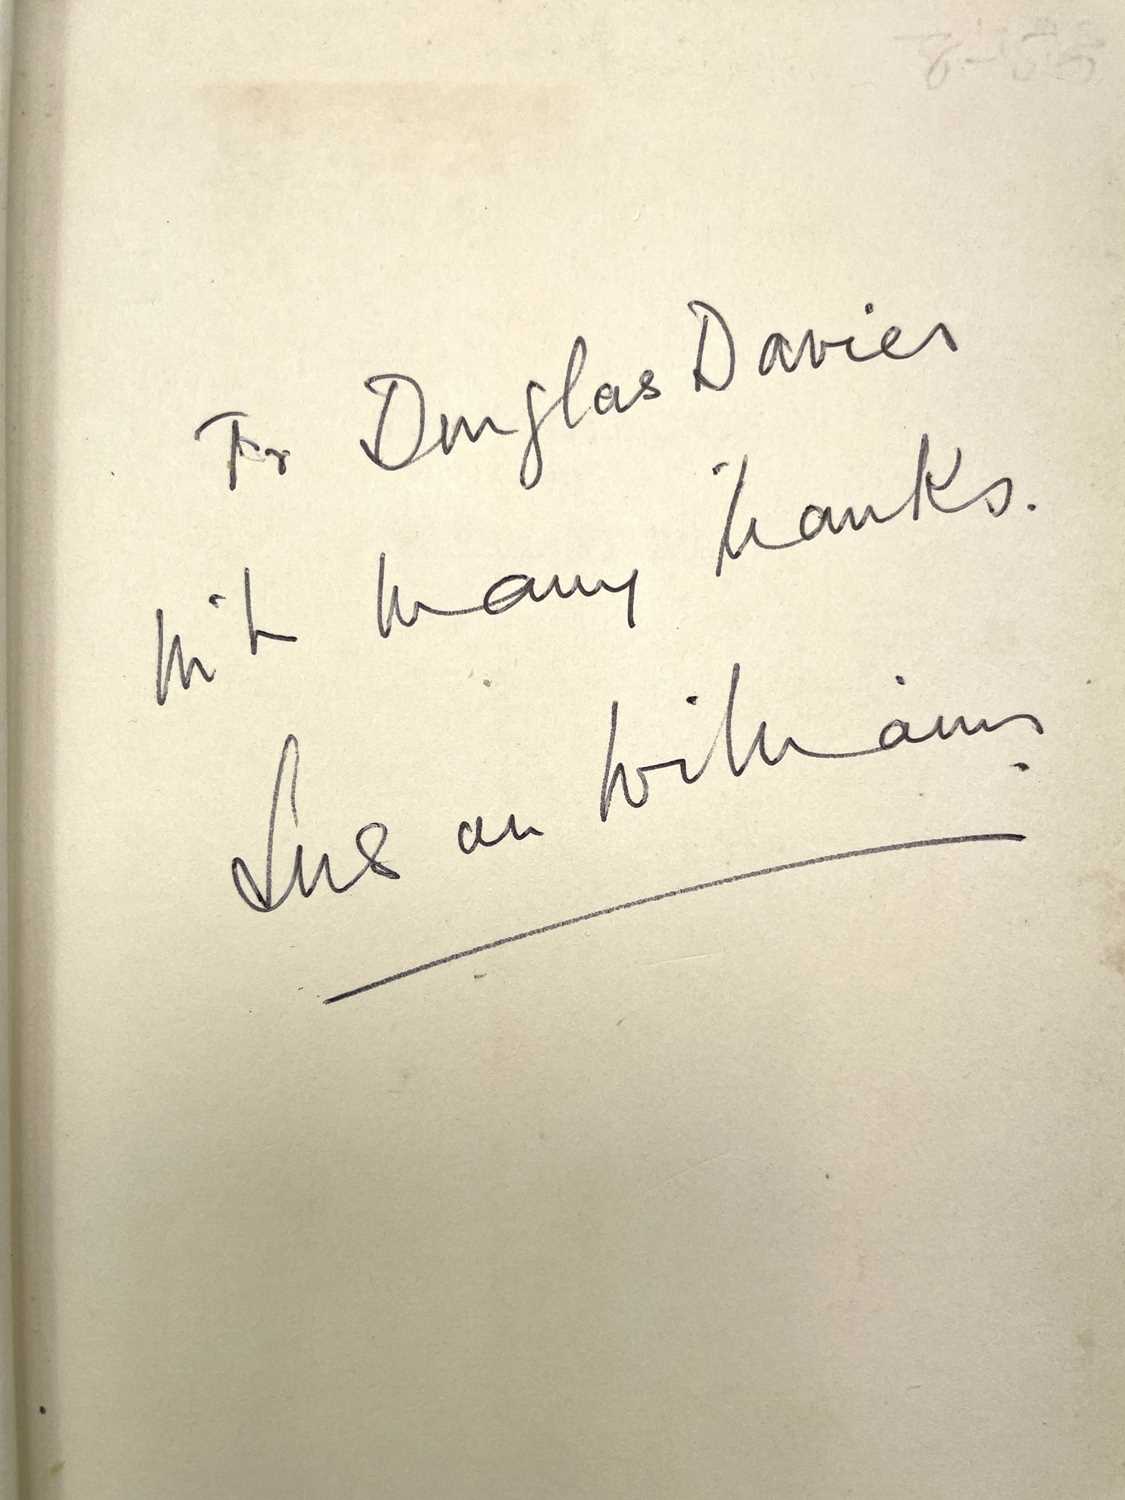 For Douglas Davies
with many thanks.
Susan Williams.